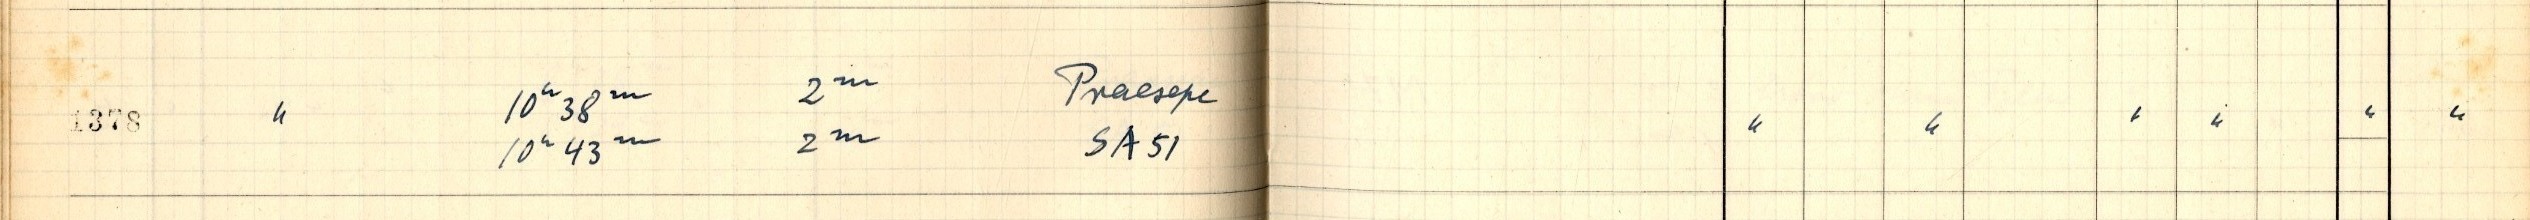 1378 " 10ʰ 38ᵐ 2ᵐ Praesepe
10ʰ 43ᵐ 2ᵐ SA 51 " " " " " "